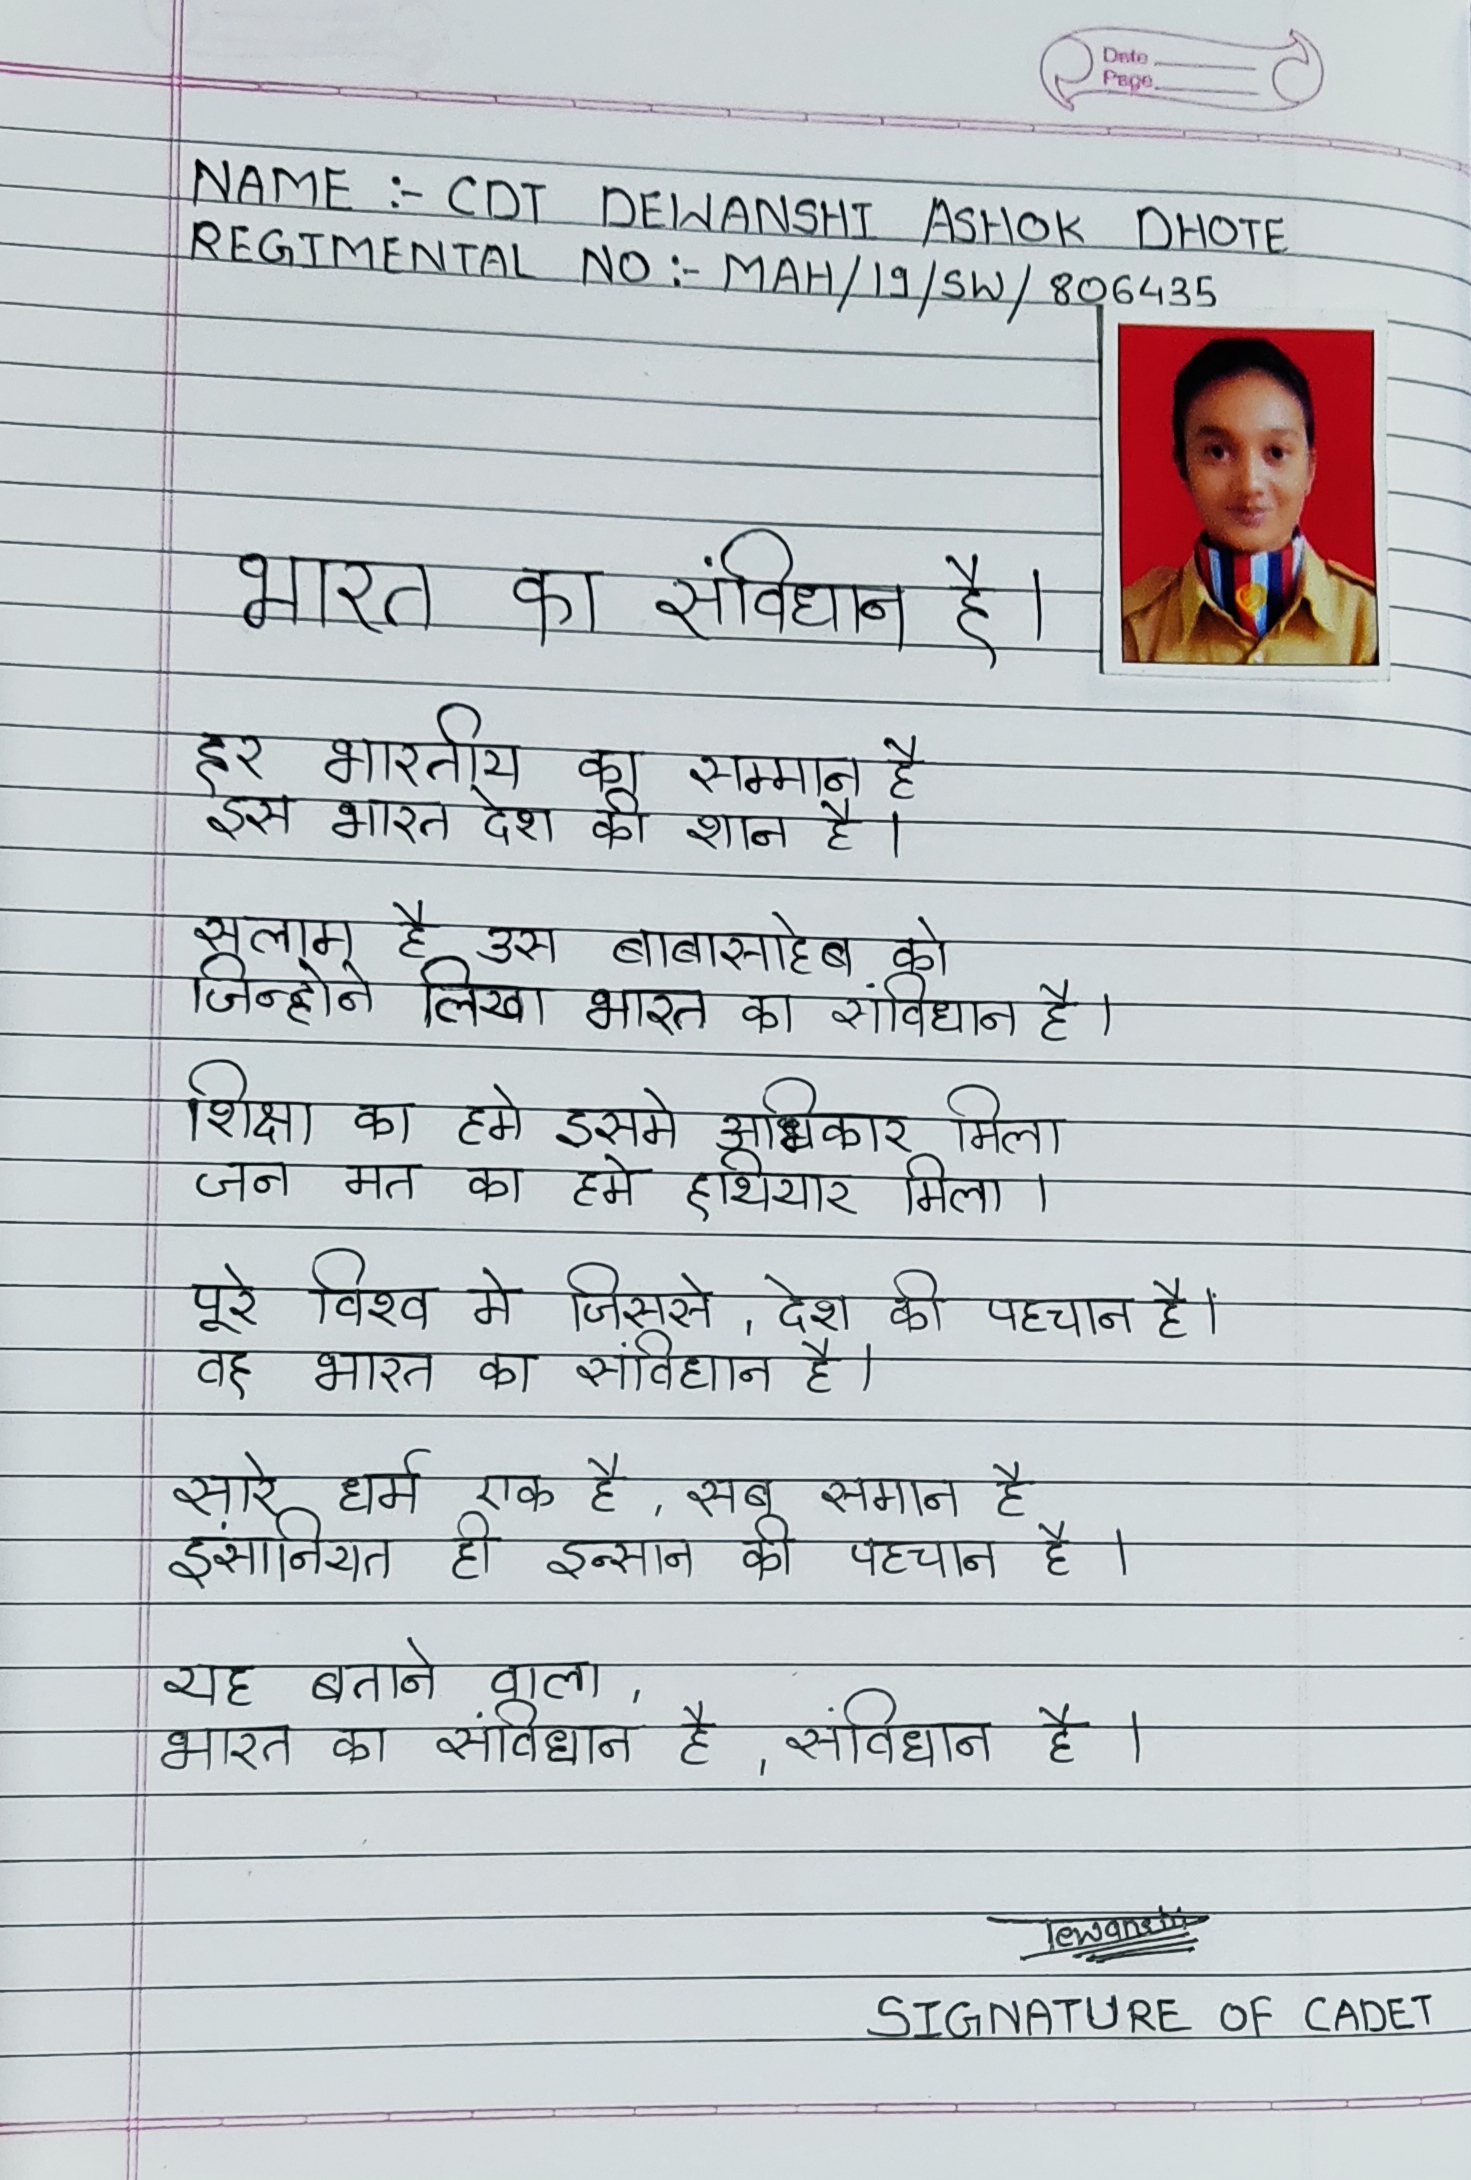 Date
Page
NAME :- CDT DEWANSHI ASHOK DHOTE
REGIMENTAL NO :- MAH/19/SW/806435
भारत का संविधान है।
हर भारतीय का सम्मान है
इस भारत देश की शान है।
सलाम है उस बाबासाहेब को
जिन्होने लिखा भारत का संविधान है।
शिक्षा का हमे इसमे अधिकार मिला
जन मत का हमे हथियार मिला।
पूरे विश्व मे जिससे, देश की पहचान है।
वह भारत का संविधान है।
सारे धर्म एक है, सब समान है
इंसानियत ही इन्सान की पहचान है।
यह बताने वाला,
भारत का संविधान है, संविधान है।
SIGNATURE OF CADET